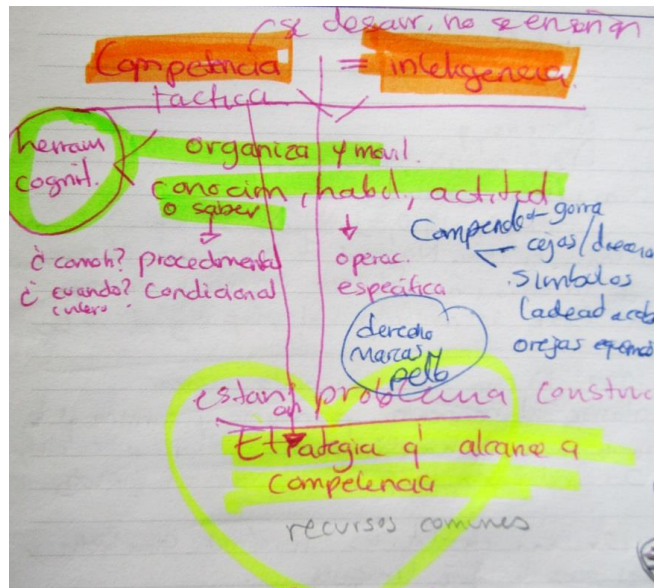 se desarr, no se enseñan
Competencia = inteligencia.
tactica
herram cognit.
organiza y movil.
conocim, habil, actitud
o saber
¿comoh? procedimental
¿cuando? condicional
operac.
específica
gorra
cejas/
símbolos
ladead
orejas
derecho
marcas y
pelo
estan problema construc
Etrategia q' alcance a
competencia
recursos comunes